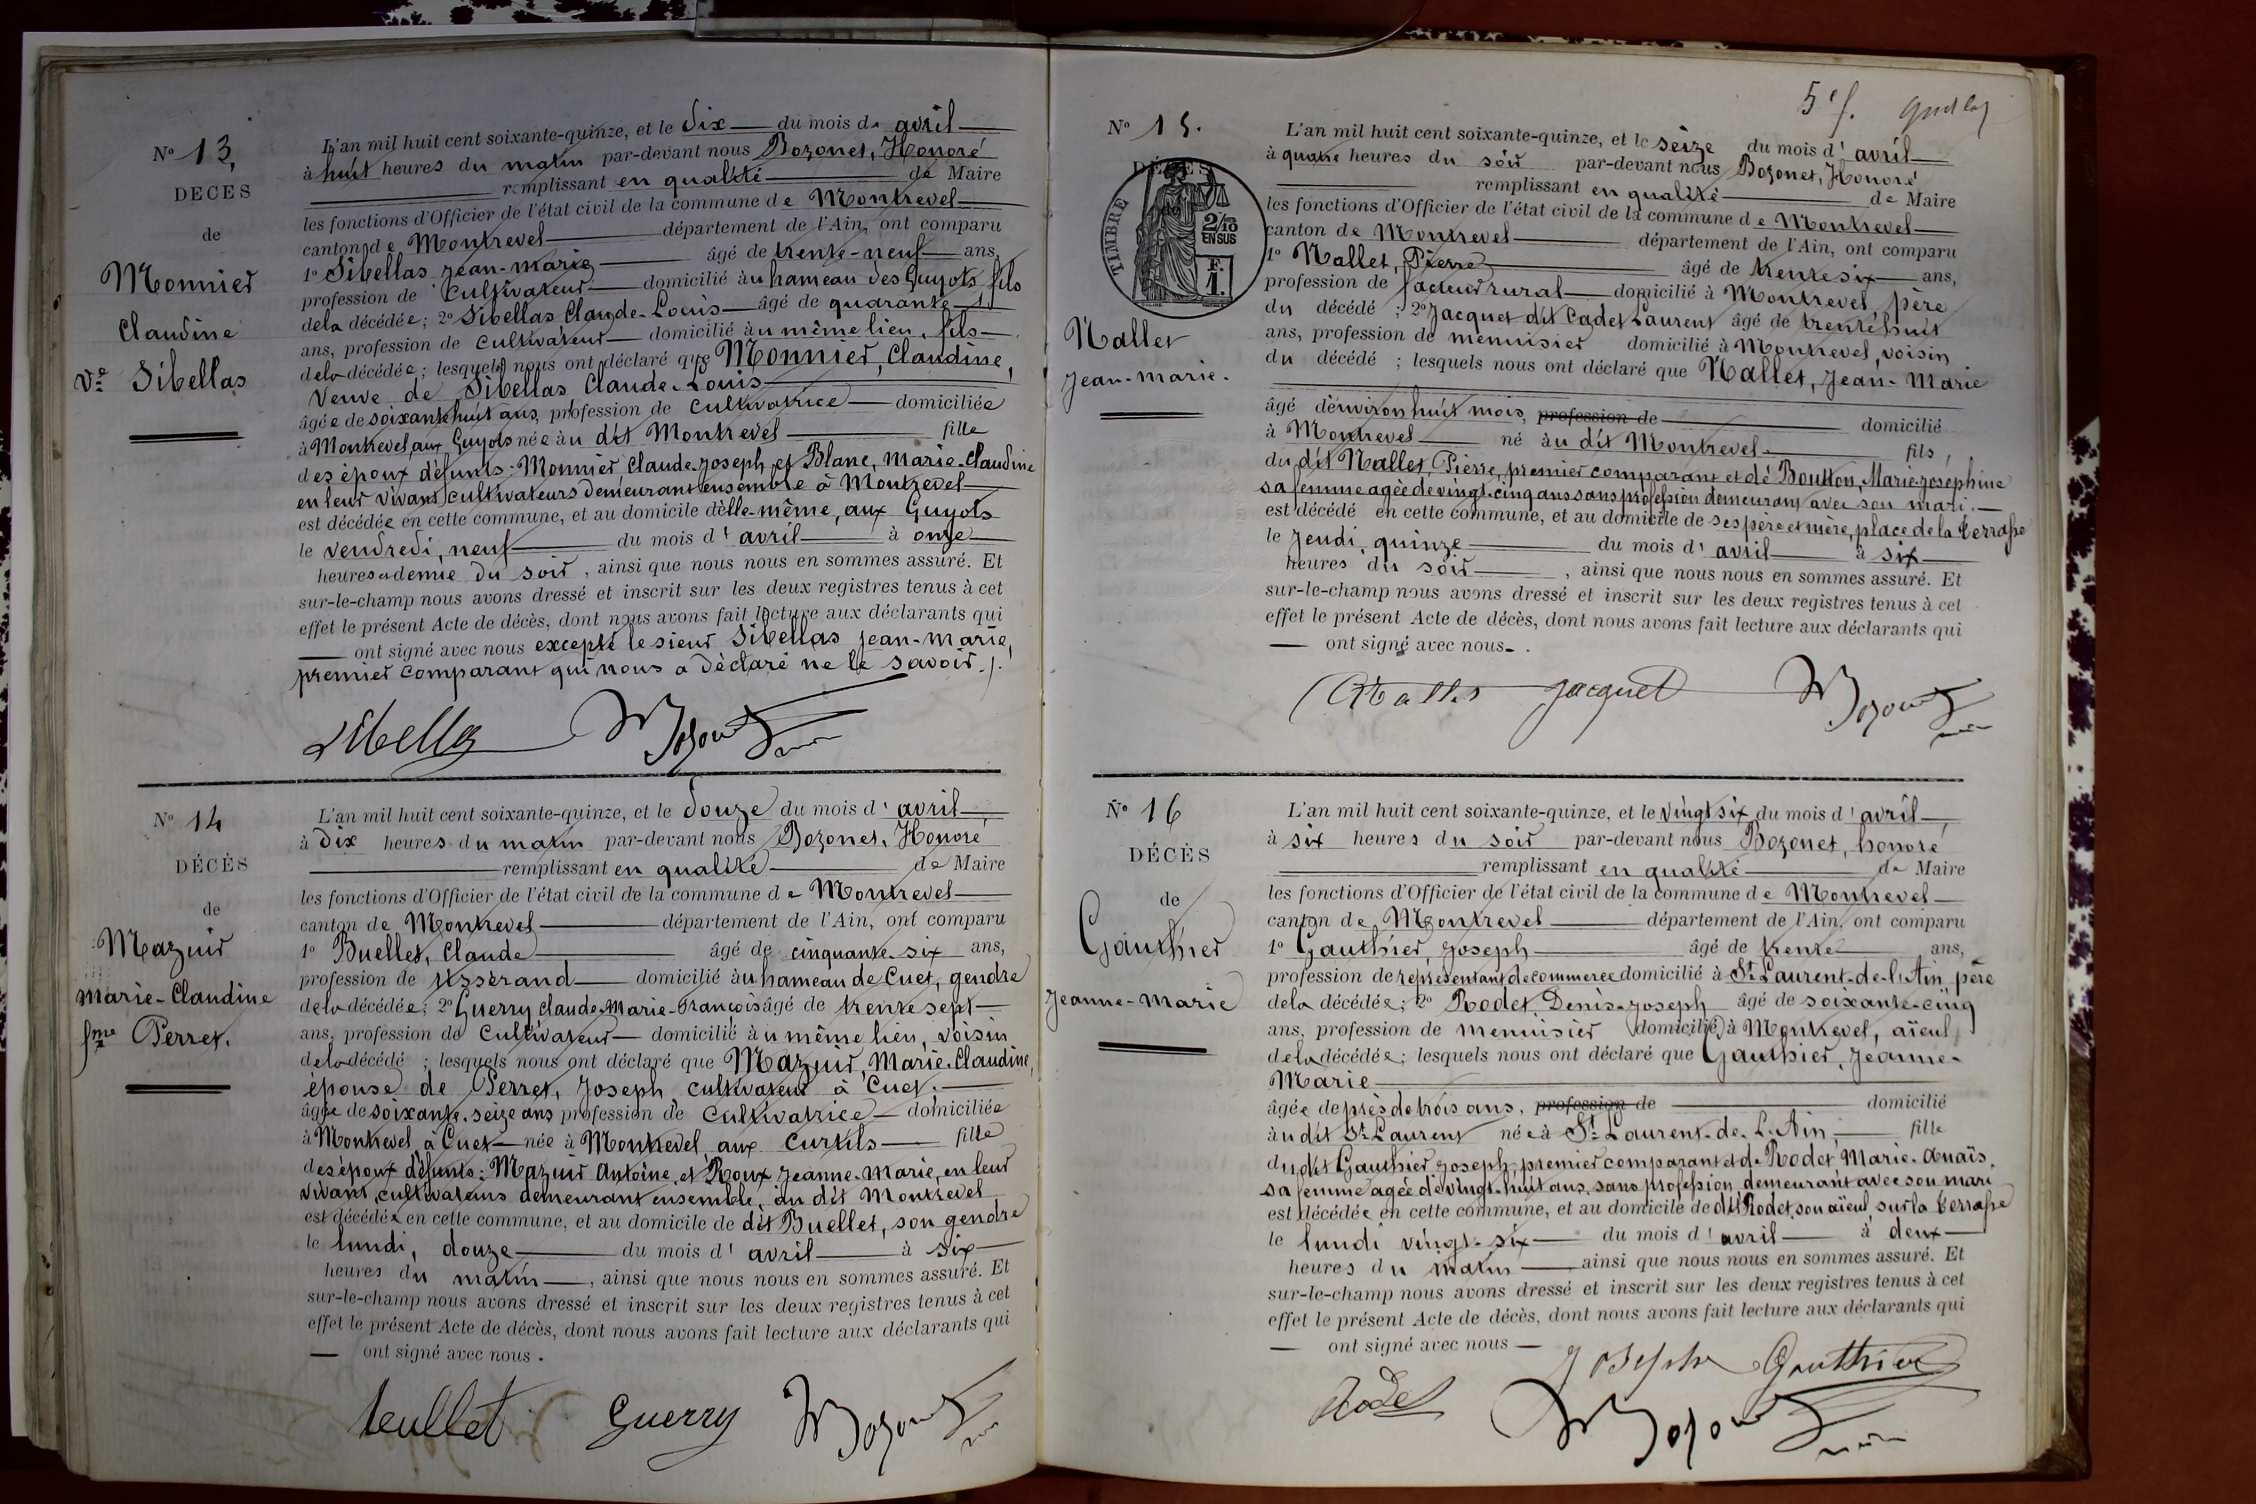 N° 13,
DÉCÈS
de
Monnier
Claudine
Ve Sibellas
L'an mil huit cent soixante-quinze, et le dix du mois de avril
à huit heures du matin par-devant nous Bozonet, Honoré
remplissant en qualité de Maire
les fonctions d'Officier de l'état civil de la commune de Montrevel
canton de Montrevel département de l'Ain, ont comparu
1° Sibellas Jean-marie âgé de trente-neuf ans,
profession de Cultivateur domicilié au hameau des Guyots fils
de la décédée; 2° Sibellas Claude-Louis âgé de quarante-
ans, profession de cultivateur domicilié au même lieu, fils
de la décédée; lesquels nous ont déclaré que Monnier, Claudine,
Veuve de Sibellas Claude-Louis
âgée de soixante huit ans, profession de cultivatrice domiciliée
à Montrevel aux Guyots née au dit Montrevel fille
des époux défunts: Monnier Claude-Joseph et Blanc, Marie-Claudine
en leur vivant cultivateurs demeurant ensemble à Montrevel
est décédée en cette commune, et au domicile d'elle-même, aux Guyots
le vendredi, neuf du mois d'avril à onze
heures et demie du soir, ainsi que nous nous en sommes assuré. Et
sur-le-champ nous avons dressé et inscrit sur les deux registres tenus à cet
effet le présent Acte de décès, dont nous avons fait lecture aux déclarants qui
ont signé avec nous excepté le sieur Sibellas Jean-marie,
premier comparant qui nous a déclaré ne le savoir./.
Sibellas Bozonet
N° 14
DÉCÈS
de
Mazuir
marie-Claudine
fme Perret.
L'an mil huit cent soixante-quinze, et le douze du mois d'avril
à dix heures du matin par-devant nous Bozonet, Honoré
remplissant en qualité de Maire
les fonctions d'Officier de l'état civil de la commune de Montrevel
canton de Montrevel département de l'Ain, ont comparu
1° Buellet, Claude âgé de cinquante-six ans,
profession de tisserand domicilié au hameau de Cuet, gendre
de la décédée; 2° Guerry Claude-Marie-François âgé de trente sept
ans, profession de Cultivateur domicilié au même lieu, voisin
de la décédé; lesquels nous ont déclaré que Mazuir, Marie-Claudine,
épouse de Perret, Joseph cultivateur à Cuet.
âgée de soixante-seize ans profession de cultivatrice domiciliée
à Montrevel à Cuet née à Montrevel, aux Curtils fille
des époux défunts: Mazuir Antoine et Roux Jeanne-Marie, en leur
vivant cultivateurs demeurant ensemble, au dit Montrevel
est décédée en cette commune, et au domicile de dit Buellet, son gendre
le lundi, douze du mois d'avril à six
heures du matin, ainsi que nous nous en sommes assuré. Et
sur-le-champ nous avons dressé et inscrit sur les deux registres tenus à cet
effet le présent Acte de décès, dont nous avons fait lecture aux déclarants qui
ont signé avec nous.
Buellet Guerry Bozonet
5e f.
N° 15.
DÉCÈS
TIMBRE
2/10
EN SUS
F.
1.
Nallet
Jean-marie.
L'an mil huit cent soixante-quinze, et le seize du mois d'avril
à quatre heures du soir par-devant nous Bozonet, Honoré
remplissant en qualité de Maire
les fonctions d'Officier de l'état civil de la commune de Montrevel
canton de Montrevel département de l'Ain, ont comparu
1° Nallet, Pierre âgé de trente six ans,
profession de facteur rural domicilié à Montrevel, père
du décédé; 2° Jacquet dit Cadet Laurent âgé de trente huit
ans, profession de menuisier domicilié à Montrevel, voisin
du décédé; lesquels nous ont déclaré que Nallet, Jean-Marie
âgé d'environ huit mois, profession de domicilié
à Montrevel né au dit Montrevel fils,
du dit Nallet, Pierre, premier comparant et de Boutton, Marie-Josephine
sa femme agée de vingt-cinq ans sans profession demeurant avec son mari.
est décédé en cette commune, et au domicile de ses père et mère, place de la terrasse
le Jeudi, quinze du mois d'avril à six
heures du soir, ainsi que nous nous en sommes assuré. Et
sur-le-champ nous avons dressé et inscrit sur les deux registres tenus à cet
effet le présent Acte de décès, dont nous avons fait lecture aux déclarants qui
ont signé avec nous.
Nallet Jacquet Bozonet
N° 16
DÉCÈS
de
Gauthier
Jeanne-Marie
L'an mil huit cent soixante-quinze, et le vingt six du mois d'avril,
à six heures du soir par-devant nous Bozonet, honoré
remplissant en qualité de Maire
les fonctions d'Officier de l'état civil de la commune de Montrevel
canton de Montrevel département de l'Ain, ont comparu
1° Gauthier, Joseph âgé de trente ans,
profession de représentant de commerce domicilié à St Laurent-de-l'Ain, père
de la décédée; 2° Rodet, Denis-Joseph âgé de soixante-cinq
ans, profession de menuisier domicilié à Montrevel, aïeul
de la décédée; lesquels nous ont déclaré que Gauthier, Jeanne-
Marie
âgée de près de trois ans, profession de domicilié
au dit St Laurent née à St Laurent-de-L'Ain, fille
du dit Gauthier Joseph, premier comparant et de Rodet Marie-Anaïs,
sa femme agée de vingt-huit ans, sans profession, demeurant avec son mari
est décédée en cette commune, et au domicile de dit Rodet, son aïeul, sur la terrasse
le lundi vingt-six du mois d'avril à deux
heures du matin ainsi que nous nous en sommes assuré. Et
sur-le-champ nous avons dressé et inscrit sur les deux registres tenus à cet
effet le présent Acte de décès, dont nous avons fait lecture aux déclarants qui
ont signé avec nous
Joseph Gauthier
Rodet Bozonet